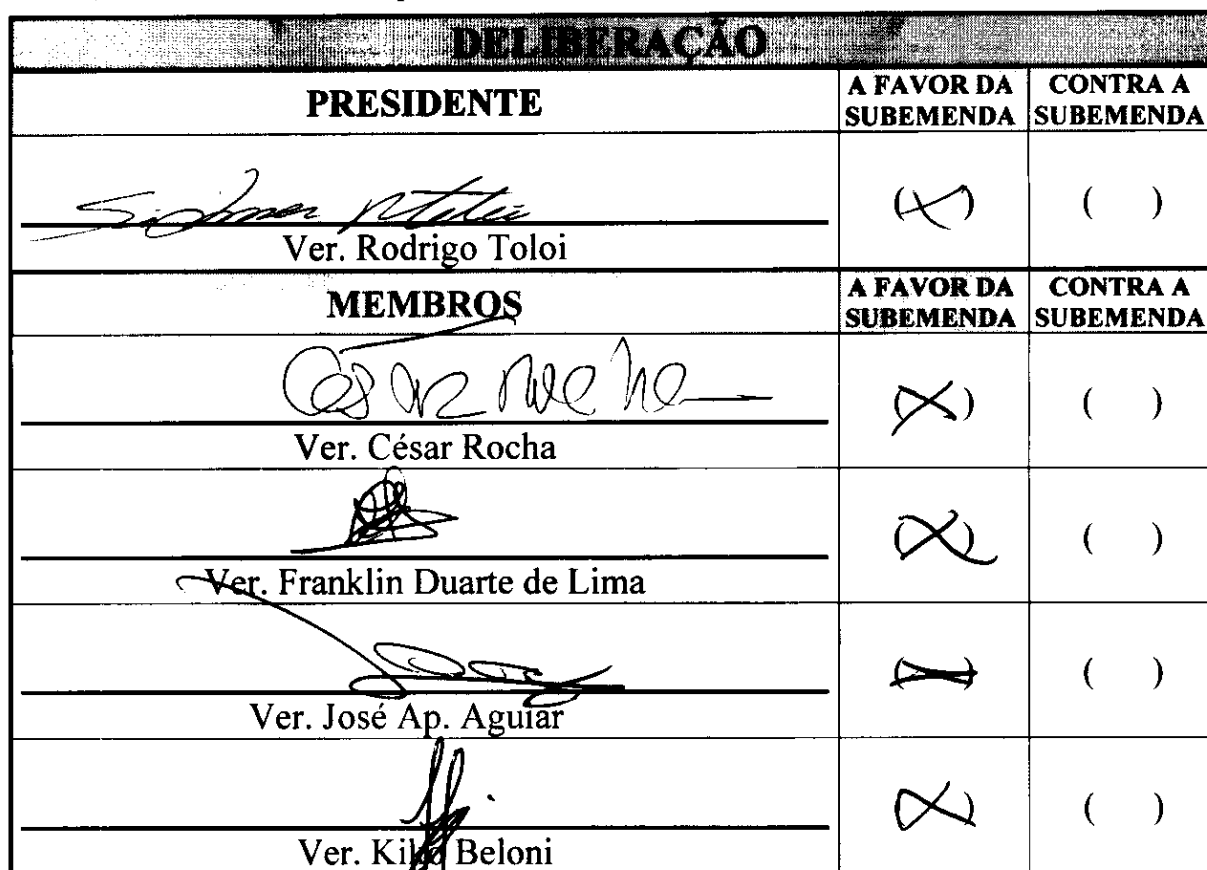 DELIBERAÇÃO
PRESIDENTE
A FAVOR DA SUBEMENDA
CONTRA A SUBEMENDA
(X) ( )
Ver. Rodrigo Toloi
MEMBROS
A FAVOR DA SUBEMENDA
CONTRA A SUBEMENDA
César Rocha
(X) ( )
Ver. César Rocha
(X) ( )
Ver. Franklin Duarte de Lima
(X) ( )
Ver. José Ap. Aguiar
(X) ( )
Ver. Beloni